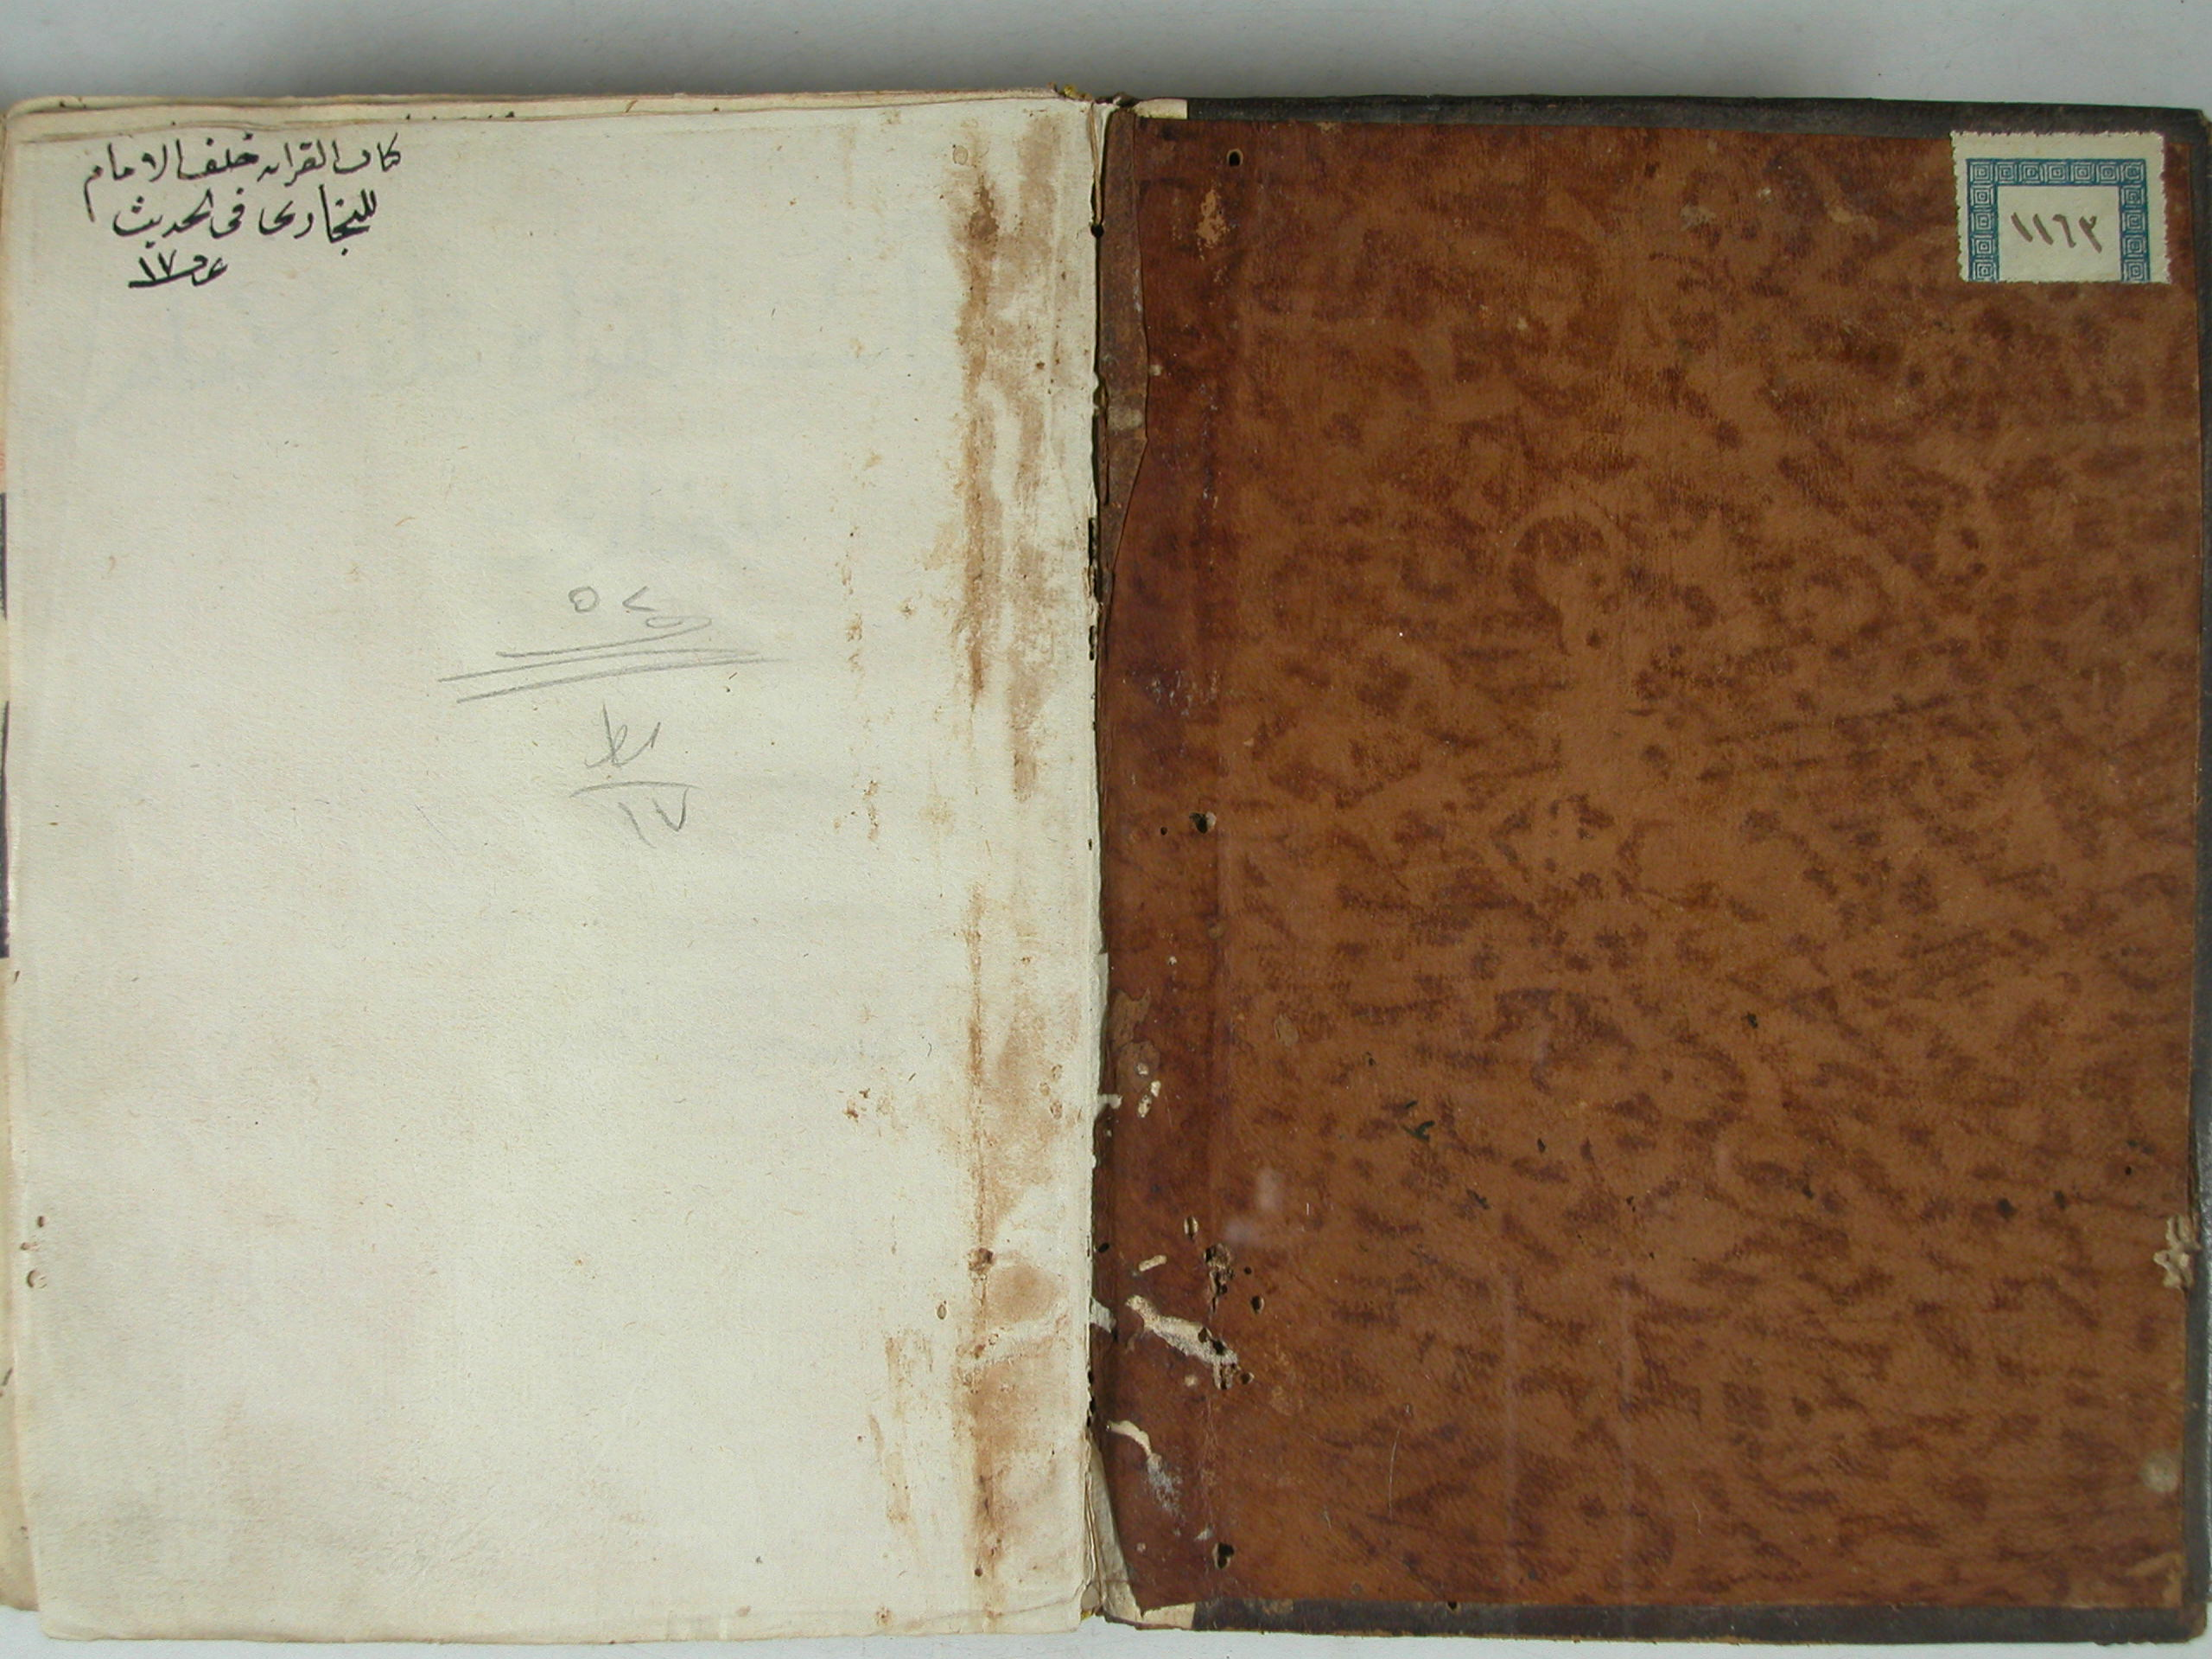 ١١٦٣
كتاب القراءه خلف الامام
للبخارى فى الحديث
١٧
٥٧
١٧